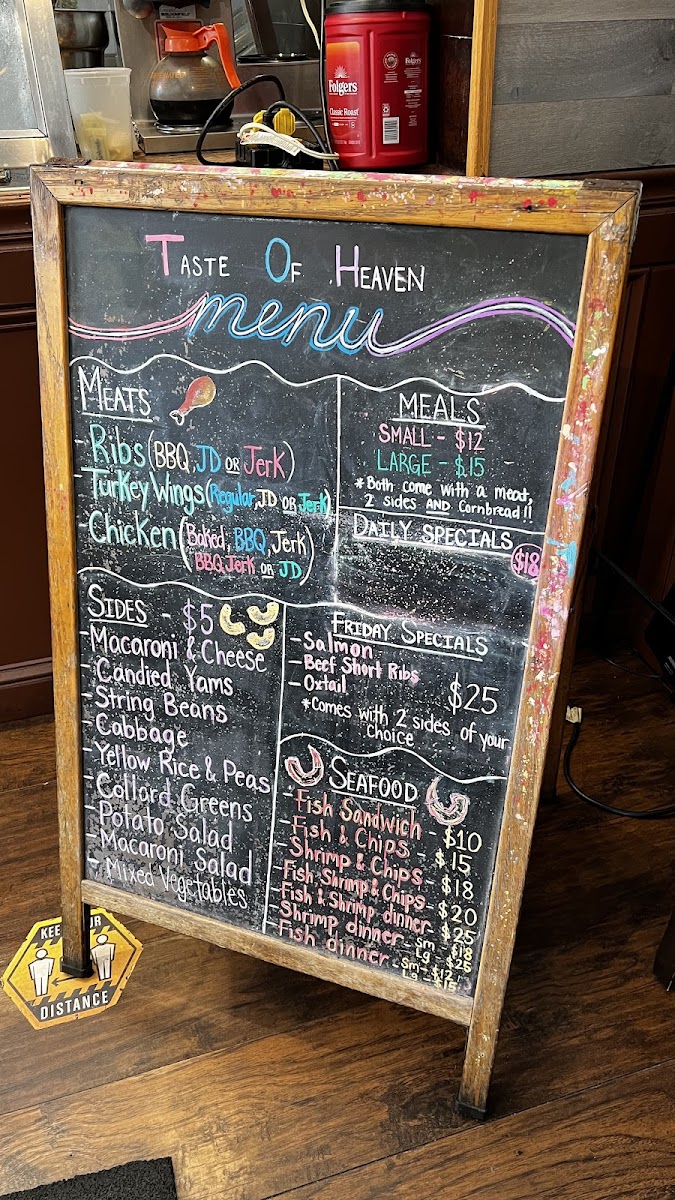 Folgers
Classic Roast
Folgers
TASTE OF HEAVEN
menu
MEATS
- Ribs (BBQ, JD OR Jerk)
- Turkey Wings (Regular, JD OR Jerk)
- Chicken (Baked, BBQ, Jerk
BBQ Jerk OR JD)
MEALS
SMALL - $12
LARGE - $15
* Both come with a meat,
2 sides AND Cornbread!!
DAILY SPECIALS
$18
SIDES - $5
- Macaroni & Cheese
- Candied Yams
- String Beans
- Cabbage
- Yellow Rice & Peas
- Collard Greens
- Potato Salad
- Macaroni Salad
- Mixed Vegetables
FRIDAY SPECIALS
- Salmon
- Beef Short Ribs
- Oxtail
$25
*Comes with 2 sides of your
choice
SEAFOOD
- Fish Sandwich - $10
- Fish & Chips - $15
- Shrimp & Chips - $18
- Fish, Shrimp & Chips - $20
- Fish & Shrimp dinner - $25
- Shrimp dinner - Sm - $18
Lg - $25
- Fish dinner - Sm - $12
Lg - $15
KEEP YOUR
DISTANCE